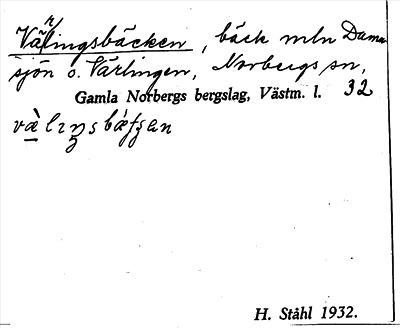 Värlingsbäcken, bäck mln Damm
sjön o. Värlingen, Norbergs sn,
Gamla Norbergs bergslag, Västm. l. 32
H. Ståhl 1932.